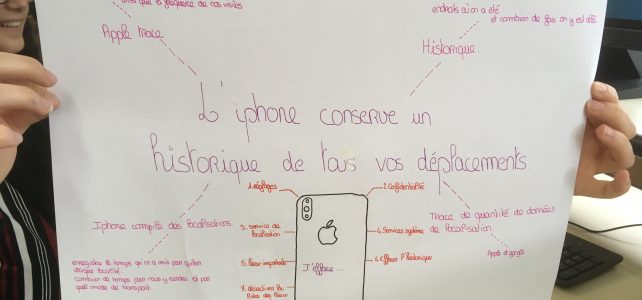 la fréquence de nos visites
endroits où on a été
et combien de fois on y est allé
Apple trace
Historique.
L'iphone conserve un
historique de tous vos déplacements.
1. Réglages
2. Confidentialité
Iphone compile des localisations.
Trace de quantité de données
de localisation.
3. service de
localisation
4. Services système
Apple et google
enregistre le temps qu'on a mis pour quitter
chaque localité.
combien de temps pour nous y rendre et par
quel mode de transport.
5. lieux importants
6. Effacer l'historique
J'efface...
7. désactiver